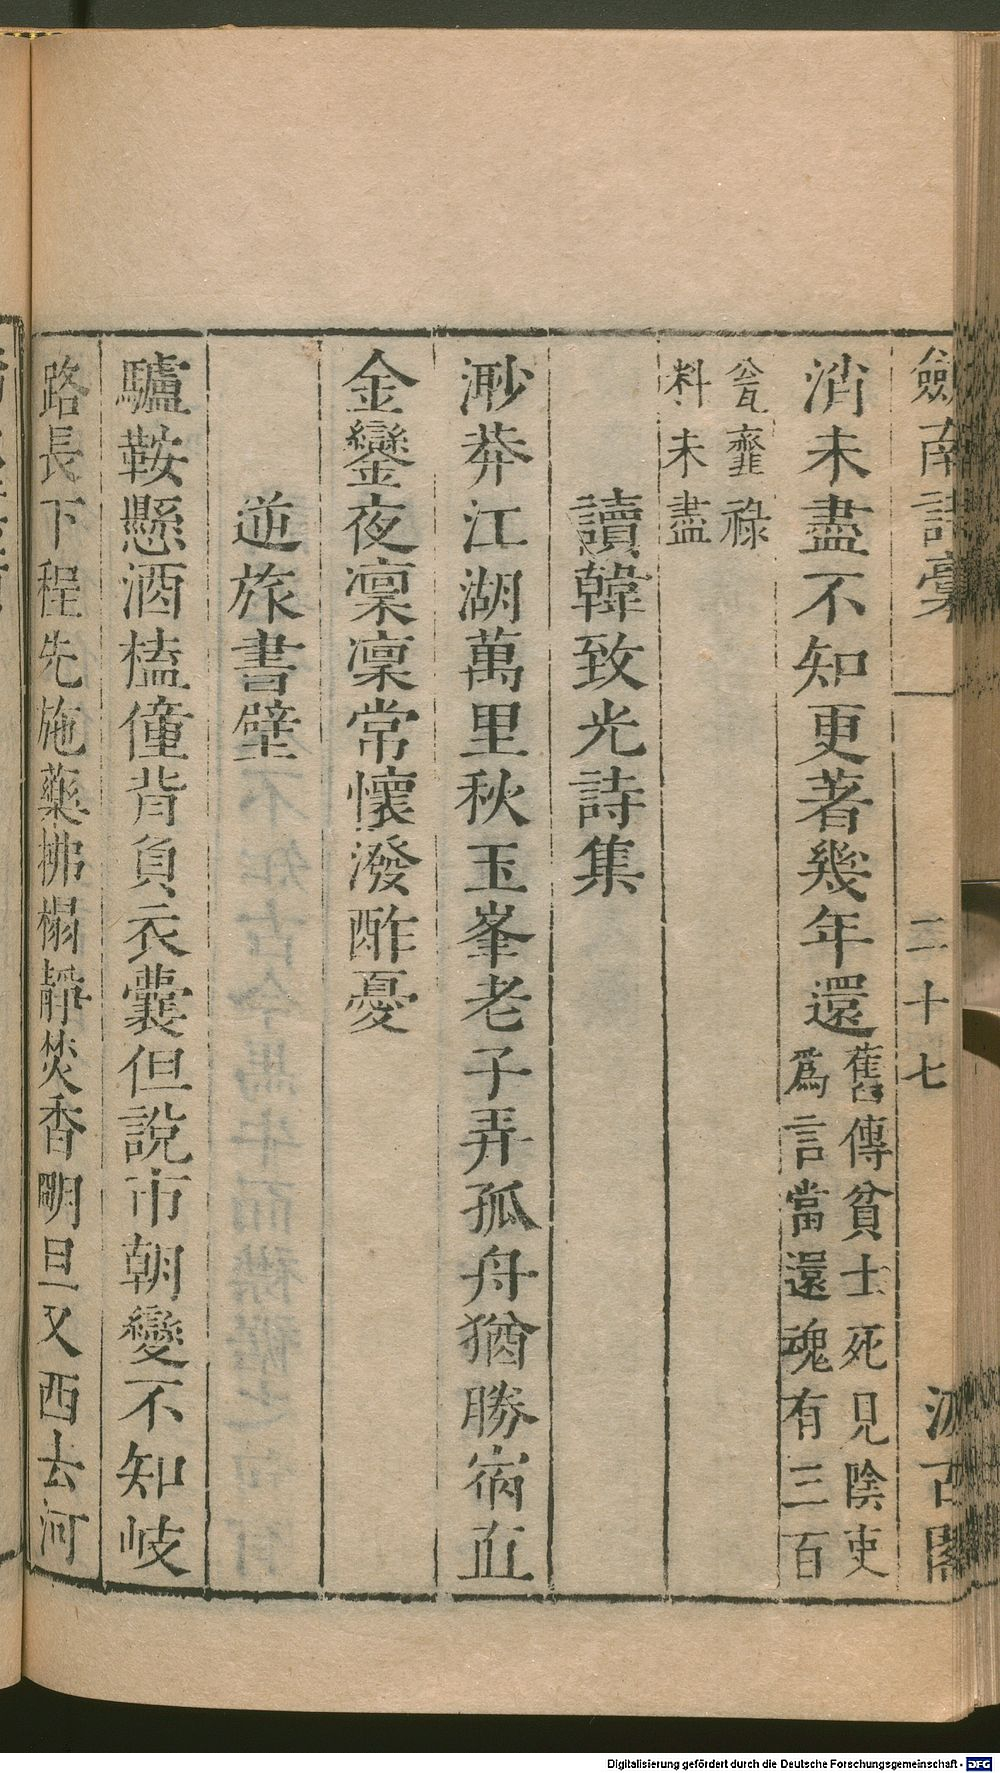 劒南詩藁
二十七
汲古閣
消未盡不知更著幾年還舊傳貧士死見陰吏
爲言當還魂有三百
瓮虀祿
料未盡
讀韓致光詩集
渺莽江湖萬里秋玉峯老子弄孤舟猶勝宿直
金鑾夜凜凜常懷潑酢憂
逆旅書壁
驢鞍懸酒榼僮背負衣囊但說市朝變不知岐
路長下程先施藥拂榻靜焚香明旦又西去河
Digitalisierung gefördert durch die Deutsche Forschungsgemeinschaft - DFG